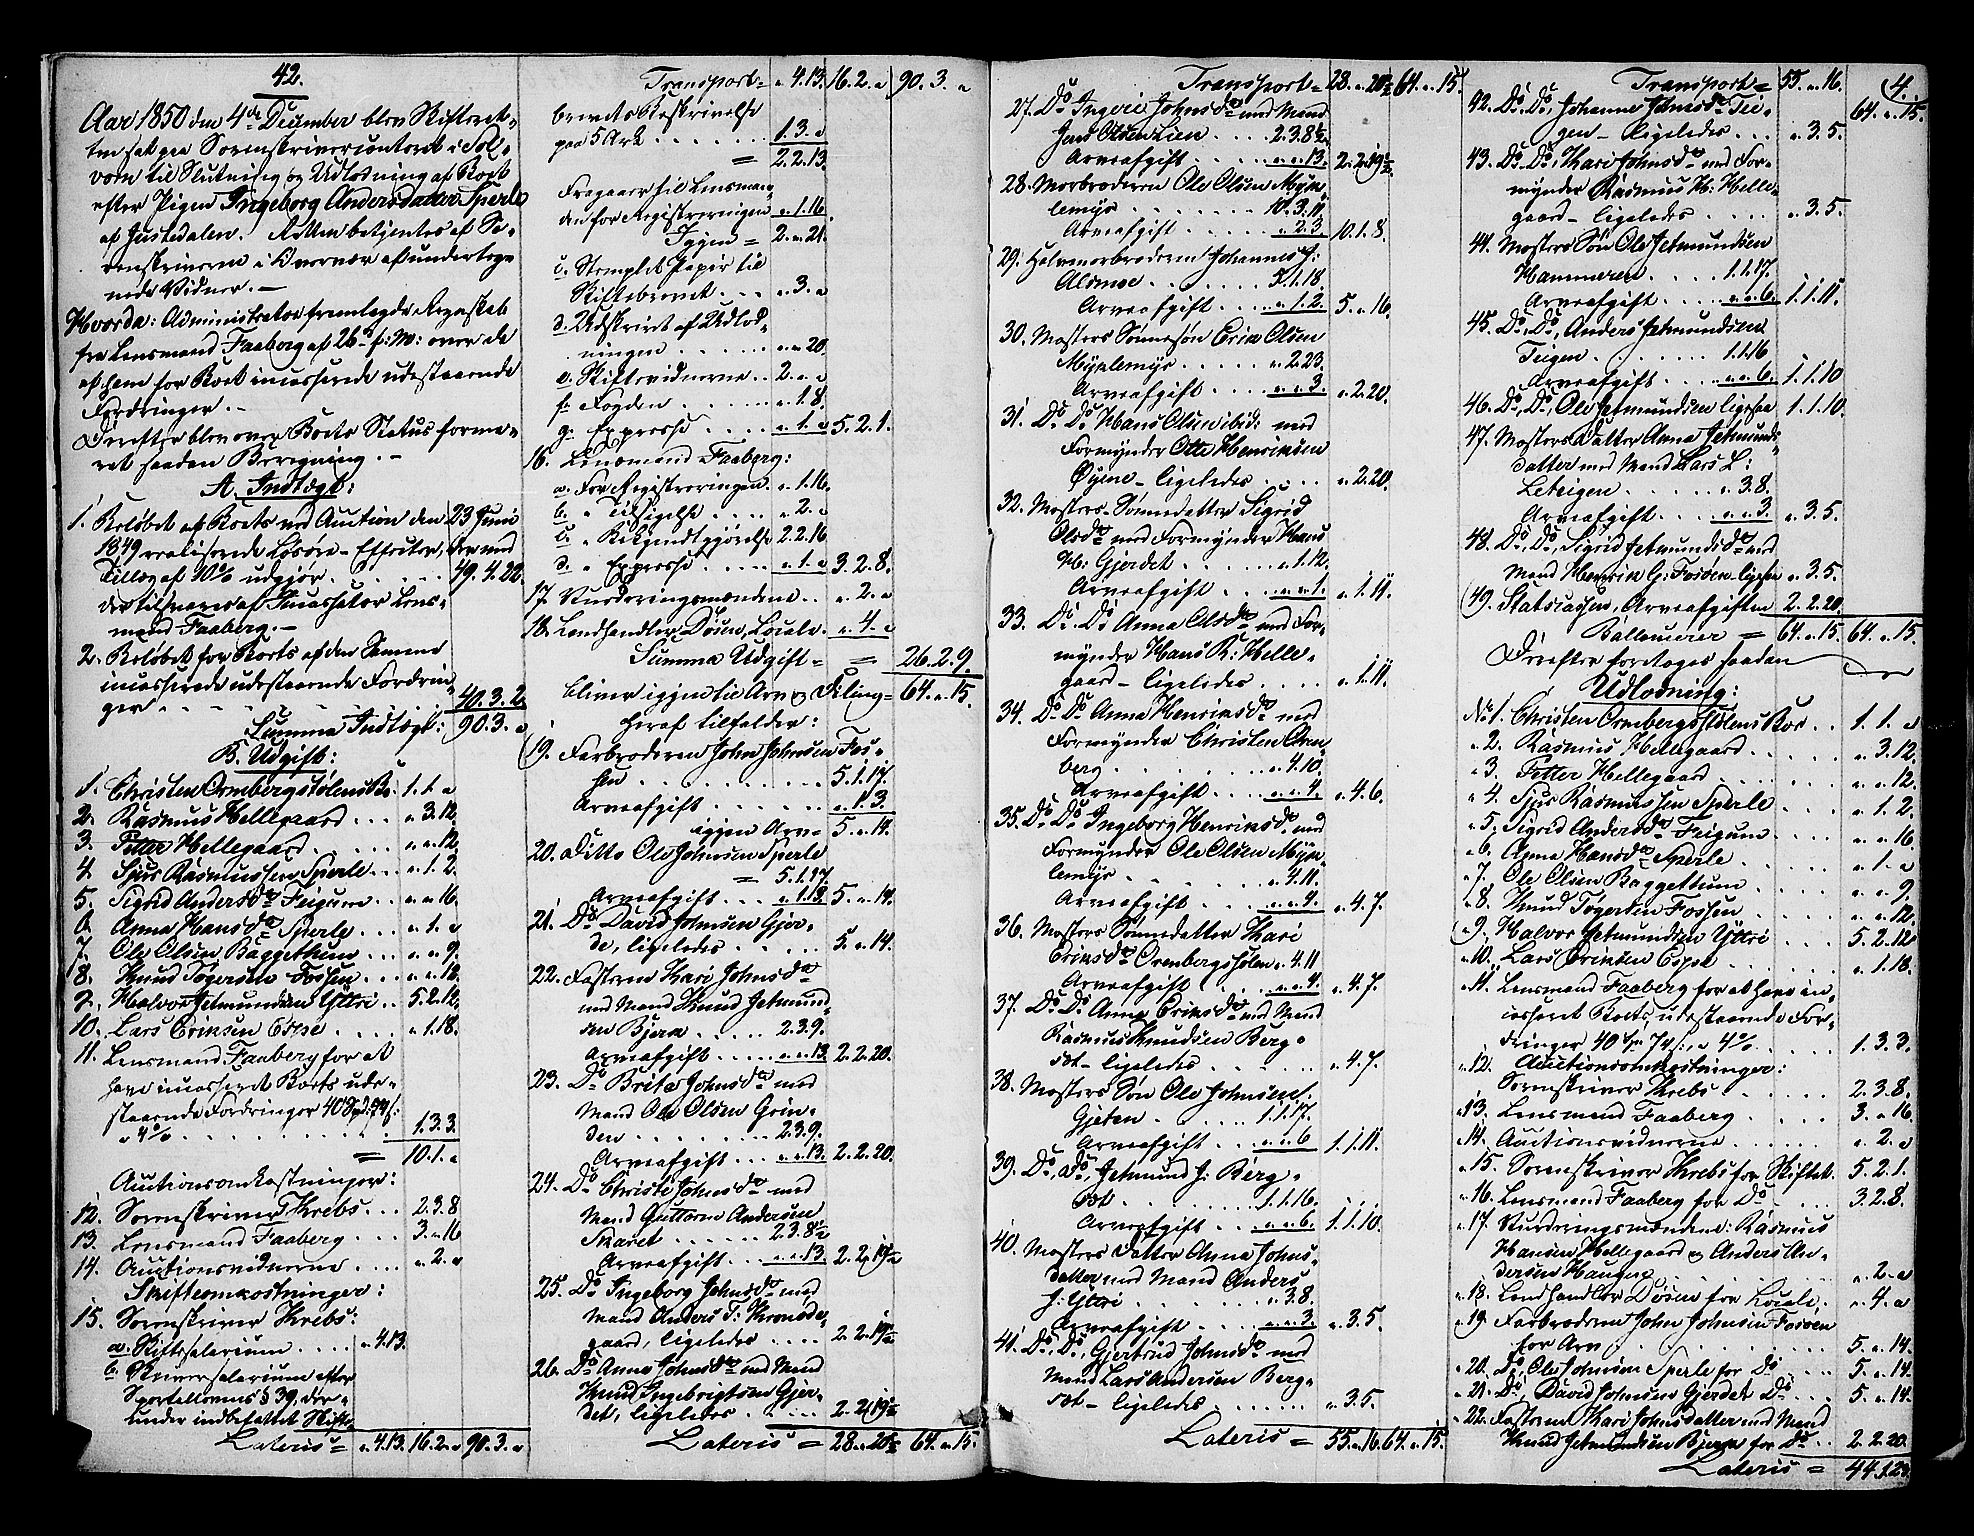 42.
Aar 1850 den 4de December blev Skifteret-
ten sat paa Sorenskrivercontoret i Sol-
vorn til Slutning og Udlodning af Boet
efter Pigen Ingeborg Andersdatter Sperle
af Justedalen. Retten betjentes af So-
renskriveren i Overvær af underteg-
nede Vidner. -
Hvorda: Administrator fremlagde Regnskab
fra Lensmand Faaberg af 26de f: M: over de
af ham for Boet incasserede udestaaende
Fordringer. -
Derefter blev over Boets Status forme-
ret saadan Beregning. -
A. Indtægt:
1. Beløbet af Boets ved Auction den 23 Juni
1849 realiserede Løsøre-Effecter, der med
Tillæg af 10% udgjør . . . . 49. 4. 22.
der tilsvares af Incassator Lens-
mand Faaberg. -
2. Beløbet for Boets af den Samme
incasserede udestaaende Fordrin-
ger . . . . 40. 3. 2.
Summa Indtægt: 90. 3. "
B. Udgift:
1. Christen Ormbergstølens Bo: 1. 1. "
2. Rasmus Hellegaard . . . " 3. 12.
3. Petter Hellegaard . . . " " 12.
4. Sjur Rasmussen Sperle . . . " 1. 2.
5. Sigrid Andersdr Feigum . . " " 16.
6. Anna Hansdr Sperle . . . " 1. "
7. Ole Olsen Baggethun . . . " " 9.
8. Knud Tøgersen Fossen . . . " " 12.
9. Halvor Jetmundsen Yttri . . 5. 2. 12.
10. Lars Eriksen Espe . . . . " 1. 18.
11. Lensmand Faaberg for at
have incasseret Boets ude-
staaende Fordringer 40 Spd. 74 s:
a 4% . . . . 1. 3. 3.
= 10. 1. "
Auctionsomkostninger:
12. Sorenskriver Krebs . . . 2. 3. 8
13. Lensmand Faaberg . . . 3. " 16
14. Auctionsvidnerne . . . . " 2. "
Skifteomkostninger:
15. Sorenskriver Krebs:
a. Skiftesalarium . . . . " 4. 13.
b. Skriversalarium efter
Sportellovens § 39, der-
under indbefattet Skifte-
Lateris = " 4. 13. 16. 2. " 90. 3. "
Transport = " 4. 13. 16. 2. " 90. 3. "
brevets Beskrivelse
paa 5 Ark . . . . 1. 3. "
= 2. 2. 13.
Fragaaer til Lensman-
den for Registreringen " 1. 16
Igjen = 2. " 21.
c. Stemplet Papir til
Skiftebrevet . . . " 3. "
d. Udskrivt af Udlod-
ningen . . . . " " 20.
e. Skiftevidnerne . . 2. " "
f. Fogden . . . . . " 1. 8.
g. Expresse . . . . " 1. " 5. 2. 1.
16. Lensmand Faaberg:
a. For Registreringen . " 1. 16.
b. " Tilsigelse . . . . " 2. "
c. " Bekjendtgjørelse 2. 2. 16
d. " Expresse . . . . . " 1. " 3. 2. 8.
17. Vurderingsmændene . . " 2. "
18. Landhandler Døsen, Locale . " 4. "
Summa Udgift = = 26. 2. 9.
bliver igjen til Arv og Deling = 64. " 15.
heraf tilfalder:
19. Farbroderen John Johnsen Fos-
sen . . . . 5. 1. 17.
Arveafgift . . . . " 1. 3.
igjen Arv = 5. " 14.
20. Ditto Ole Johnsen Sperle
= 5. 1. 17
Arveafgift . . . . " 1. 3. 5. " 14.
21. Do David Johnsen Gjer-
de, ligeledes . . . . 5. " 14.
22. Fasteren Kari Johnsdr
med Mand Knud Jetmund-
sen Bjerk . . . . 2. 3. 9.
Arveafgift . . . . . " " 13. 2. 2. 20.
23. Do Brita Johnsdr med
Mand Ole Olsen Grin-
den . . . . 2. 3. 9.
Arveafgift . . . " " 13. 2. 2. 20.
24. Do Christi Johnsdr med
Mand Guttorm Andersen
Skaret . . . . . 2. 3. 8½
Arveafgift . . . " " 13. 2. 2. 19½
25. Do Ingeborg Johnsdr med
Mand Anders T: Kronde-
gaard, ligeledes . . . . 2. 2. 19½
26. Do Anna Johnsdr med Mand
Knud Ingebrigtsen Gjer-
det, ligeledes . . . . 2. 2. 19½
Lateris = 28. " 20½ 64. " 15.
Transport = 28. " 20½ 64. " 15.
27. Do Ingeri Johnsdr med Mand
Jens Olsen Lien . . . 2. 3. 8½
Arveafgift . . . . " " 13. 2. 2. 19½
28. Morbroderen Ole Olsen Myk-
lemyr . . . . 10. 3. 11.
Arveafgift . . . . . " 2. 3 10. 1. 8.
29. Halvmorbroderen Johannes J:
Alsmoe . . . . . 5. 1. 18.
Arveafgift . . . . " 1. 2. 5. " 16.
30. Mosters Sønnesøn Erik Olsen
Myklemyr . . . . " 2. 23.
Arveafgift . . . . . " " 3. " 2. 20.
31. Do Do Hans Olsen ibid: med
Formynder Otte Henriksen
Øyene - ligeledes . . . . " 2. 20.
32. Mosters Sønnedatter Sigrid
Olsdr med Formynder Hans
H: Gjerdet . . . . . " 1. 12.
Arveafgift . . . . . " " 1. " 1. 11.
33. Do Do Anna Olsdr med For-
mynder Hans R: Helle-
gaard - ligeledes . . . . " 1. 11.
34. Do Do Anna Henriksdr med
Formynder Christen Orm-
berg . . . . " 4. 10
Arveafgift . . . . " " 4. " 4. 6.
35. Do Do Ingeborg Henriksdr med
Formynder Ole Olsen Myk-
lemyr . . . . " 4. 11.
Arveafgift . . . . " " 4. " 4. 7.
36. Mosters Sønnedatter Kari
Eriksdr Ormbergstølen " 4. 11
Arveafgift . . . " " 4. " 4. 7.
37. Do Do Anna Eriksdr med Mand
Rasmus Knudsen Berg-
set - ligeledes . . . . " 4. 7.
38. Mosters Søn Ole Johnsen
Gjeten . . . . . 1. 1. 17.
Arveafgift . . . . " " 6 1. 1. 11.
39. Do, Do, Jetmund J: Berg-
set . . . . 1. 1. 16.
Arveafgift . . . . " " 6. 1. 1. 10.
40. Mosters Datter Anna Johns-
datter med Mand Anders
J: Yttri . . . . " 3. 8.
Arveafgift . . . . " " 3. " 3. 5.
41. Do, Do, Gjertrud Johnsdr med
Mand Lars Andersen Berg-
set - ligeledes . . . . " 3. 5.
Lateris = 55. " 16. 64. " 15.
4.
Transport = 55. " 16. 64. " 15.
42. Do, Do, Johanne Johnsdr Tei-
gen - ligeledes . . . " 3. 5.
43. Do, Do, Kari Johnsdr med For-
mynder Rasmus H: Helle-
gaard - ligeledes . . . . " 3. 5.
44. Mosters Søn Ole Jetmundsen
Hammeren . . . . 1. 1. 17.
Arveafgift . . . . " " 6. 1. 1. 11.
45. Do, Do, Anders Jetmundsen
Teigen . . . . 1. 1. 16
Arveafgift . . . . " " 6. 1. 1. 10
46. Do, Do, Ole Jetmundsen ligesaa 1. 1. 10.
47. Mosters Datter Anna Jetmunds-
datter med Mand Lars L:
Leteigen . . . . " 3. 8.
Arveafgift . . . . " " 3. " 3. 5.
48. Do, Do, Sigrid Jetmundsdr med
Mand Henrik G: Fossen - ligesaa " 3. 5.
49. Statscassen, Arveafgiften 2. 2. 20.
Ballancerer = 64. " 15. 64. " 15.
Derefter foretages saadan
Udlodning:
No 1. Christen Ormbergstølens Boe . . 1. 1. "
" 2. Rasmus Hellegaard . . . . " 3. 12.
" 3. Petter Hellegaard . . . . " " 12.
" 4. Sjur Rasmussen Sperle . . . . " 1. 2.
" 5. Sigrid Andersdr Feigum . . . . " " 16
" 6. Anna Hansdr Sperle . . . . " 1. "
" 7. Ole Olsen Baggethun . . . . " " 9.
" 8. Knud Tøgersen Fossen . . . . " " 12.
" 9. Halvor Jetmundsen Yttri . . . . 5. 2. 12
" 10. Lars Eriksen Espe . . . . " 1. 18.
" 11. Lensmand Faaberg for at have in-
casseret Boets udestaaende For-
dringer 40 Spd 74 s: a 4% . . . . 1. 3. 3.
" 12. Auctionsomkostninger:
Sorenskriver Krebs . . . . . 2. 3. 8.
" 13. Lensmand Faaberg . . . . 3. " 16
" 14. Auctionsvidnerne . . . . " 2. "
" 15. Sorenskriver Krebs for Skiftet . 5. 2. 1.
" 16. Lensmand Faaberg for Do . . . . 3. 2. 8.
" 17. Vurderingsmændene: Rasmus
Hansen Hellegaard og Anders An-
dersen Haugen . . . . " 2. "
" 18. Landhandler Døsen for Locale . " 4. "
" 19. Farbroderen John Johnsen Fossen
for Arv . . . . 5. " 14.
" 20. Do, Ole Johnsen Sperle for Do . . 5. " 14.
" 21. Do, David Johnsen Gjerdet Do . . . 5. " 14.
" 22. Fasteren Kari Johnsdatter med Mand
Knud Jetmundsen Bjerk for Do . . 2. 2. 20.
Lateris = 44. 1. 23.